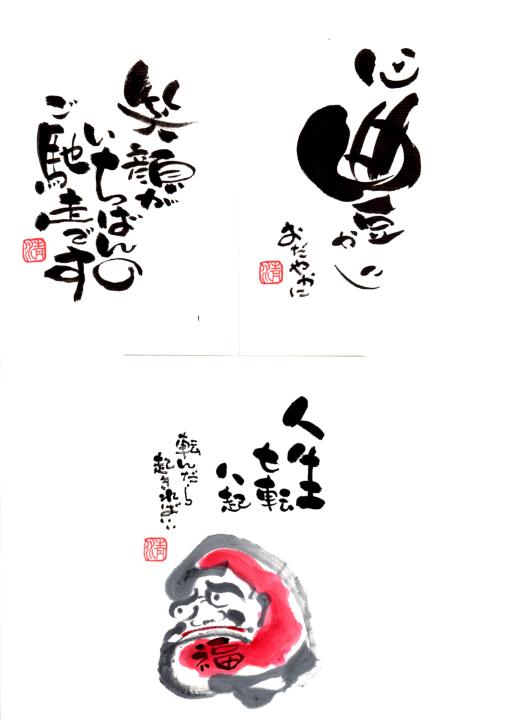 笑顔が
いちばんの
ご馳走です
清
心
豊
かに
おだやかに
清
人生
七転
八起
転んだら
起きればいい
清
福